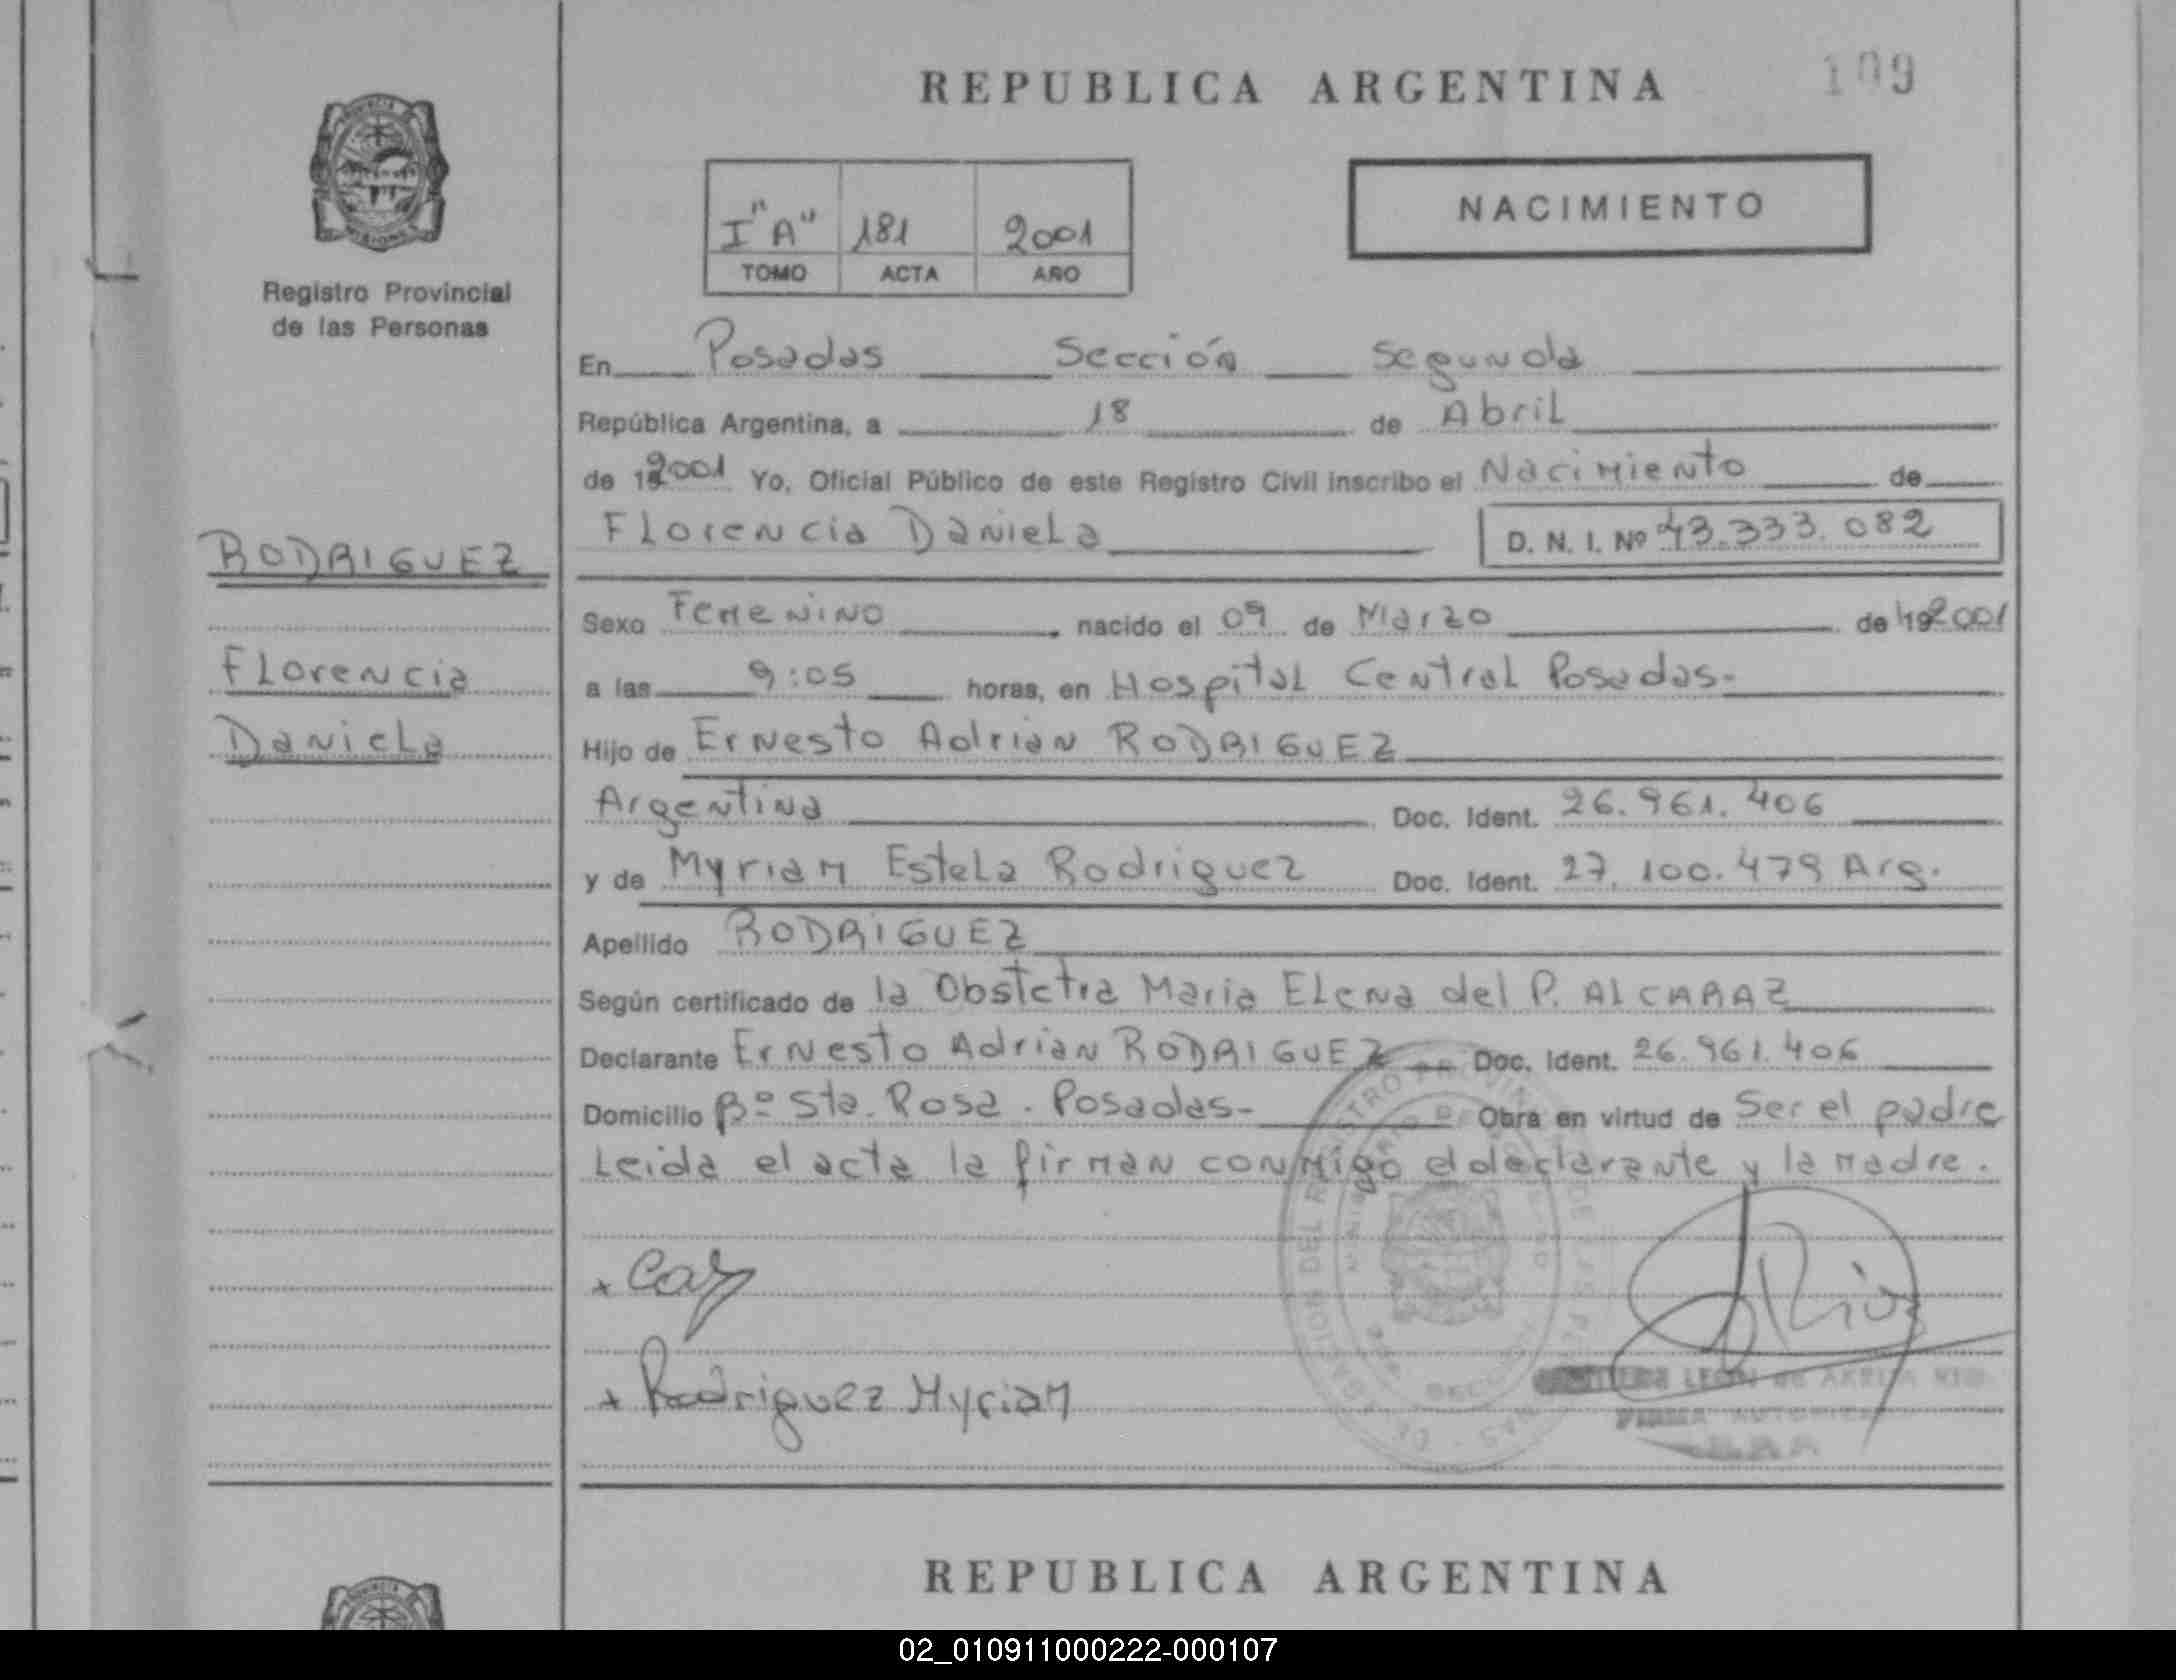 REPUBLICA ARGENTINA
109
Registro Provincial
de las Personas
I "A" 181 2001
TOMO ACTA AÑO
NACIMIENTO
En Posadas Sección Segunda
República Argentina, a 18 de Abril
de 2001 Yo, Oficial Público de este Registro Civil inscribo el Nacimiento de
Florencia Daniela D. N. I. Nº 43.333.082
RODRIGUEZ
Florencia
Daniela
Sexo Femenino nacido el 09 de Marzo de 2001
a las 9:05 horas, en Hospital Central Posadas.
Hijo de Ernesto Adrian RODRIGUEZ
Argentina Doc. Ident. 26.961.406
y de Myriam Estela Rodriguez Doc. Ident. 27.100.479 Arg.
Apellido RODRIGUEZ
Según certificado de la Obstetra Maria Elena del P. ALCARAZ
Declarante Ernesto Adrian RODRIGUEZ Doc. Ident. 26.961.406
Domicilio Bº Sta. Rosa. Posadas- Obra en virtud de Ser el padre
Leida el acta la firman conmigo el declarante y la madre.
Rodriguez Myriam
REPUBLICA ARGENTINA
02_010911000222-000107